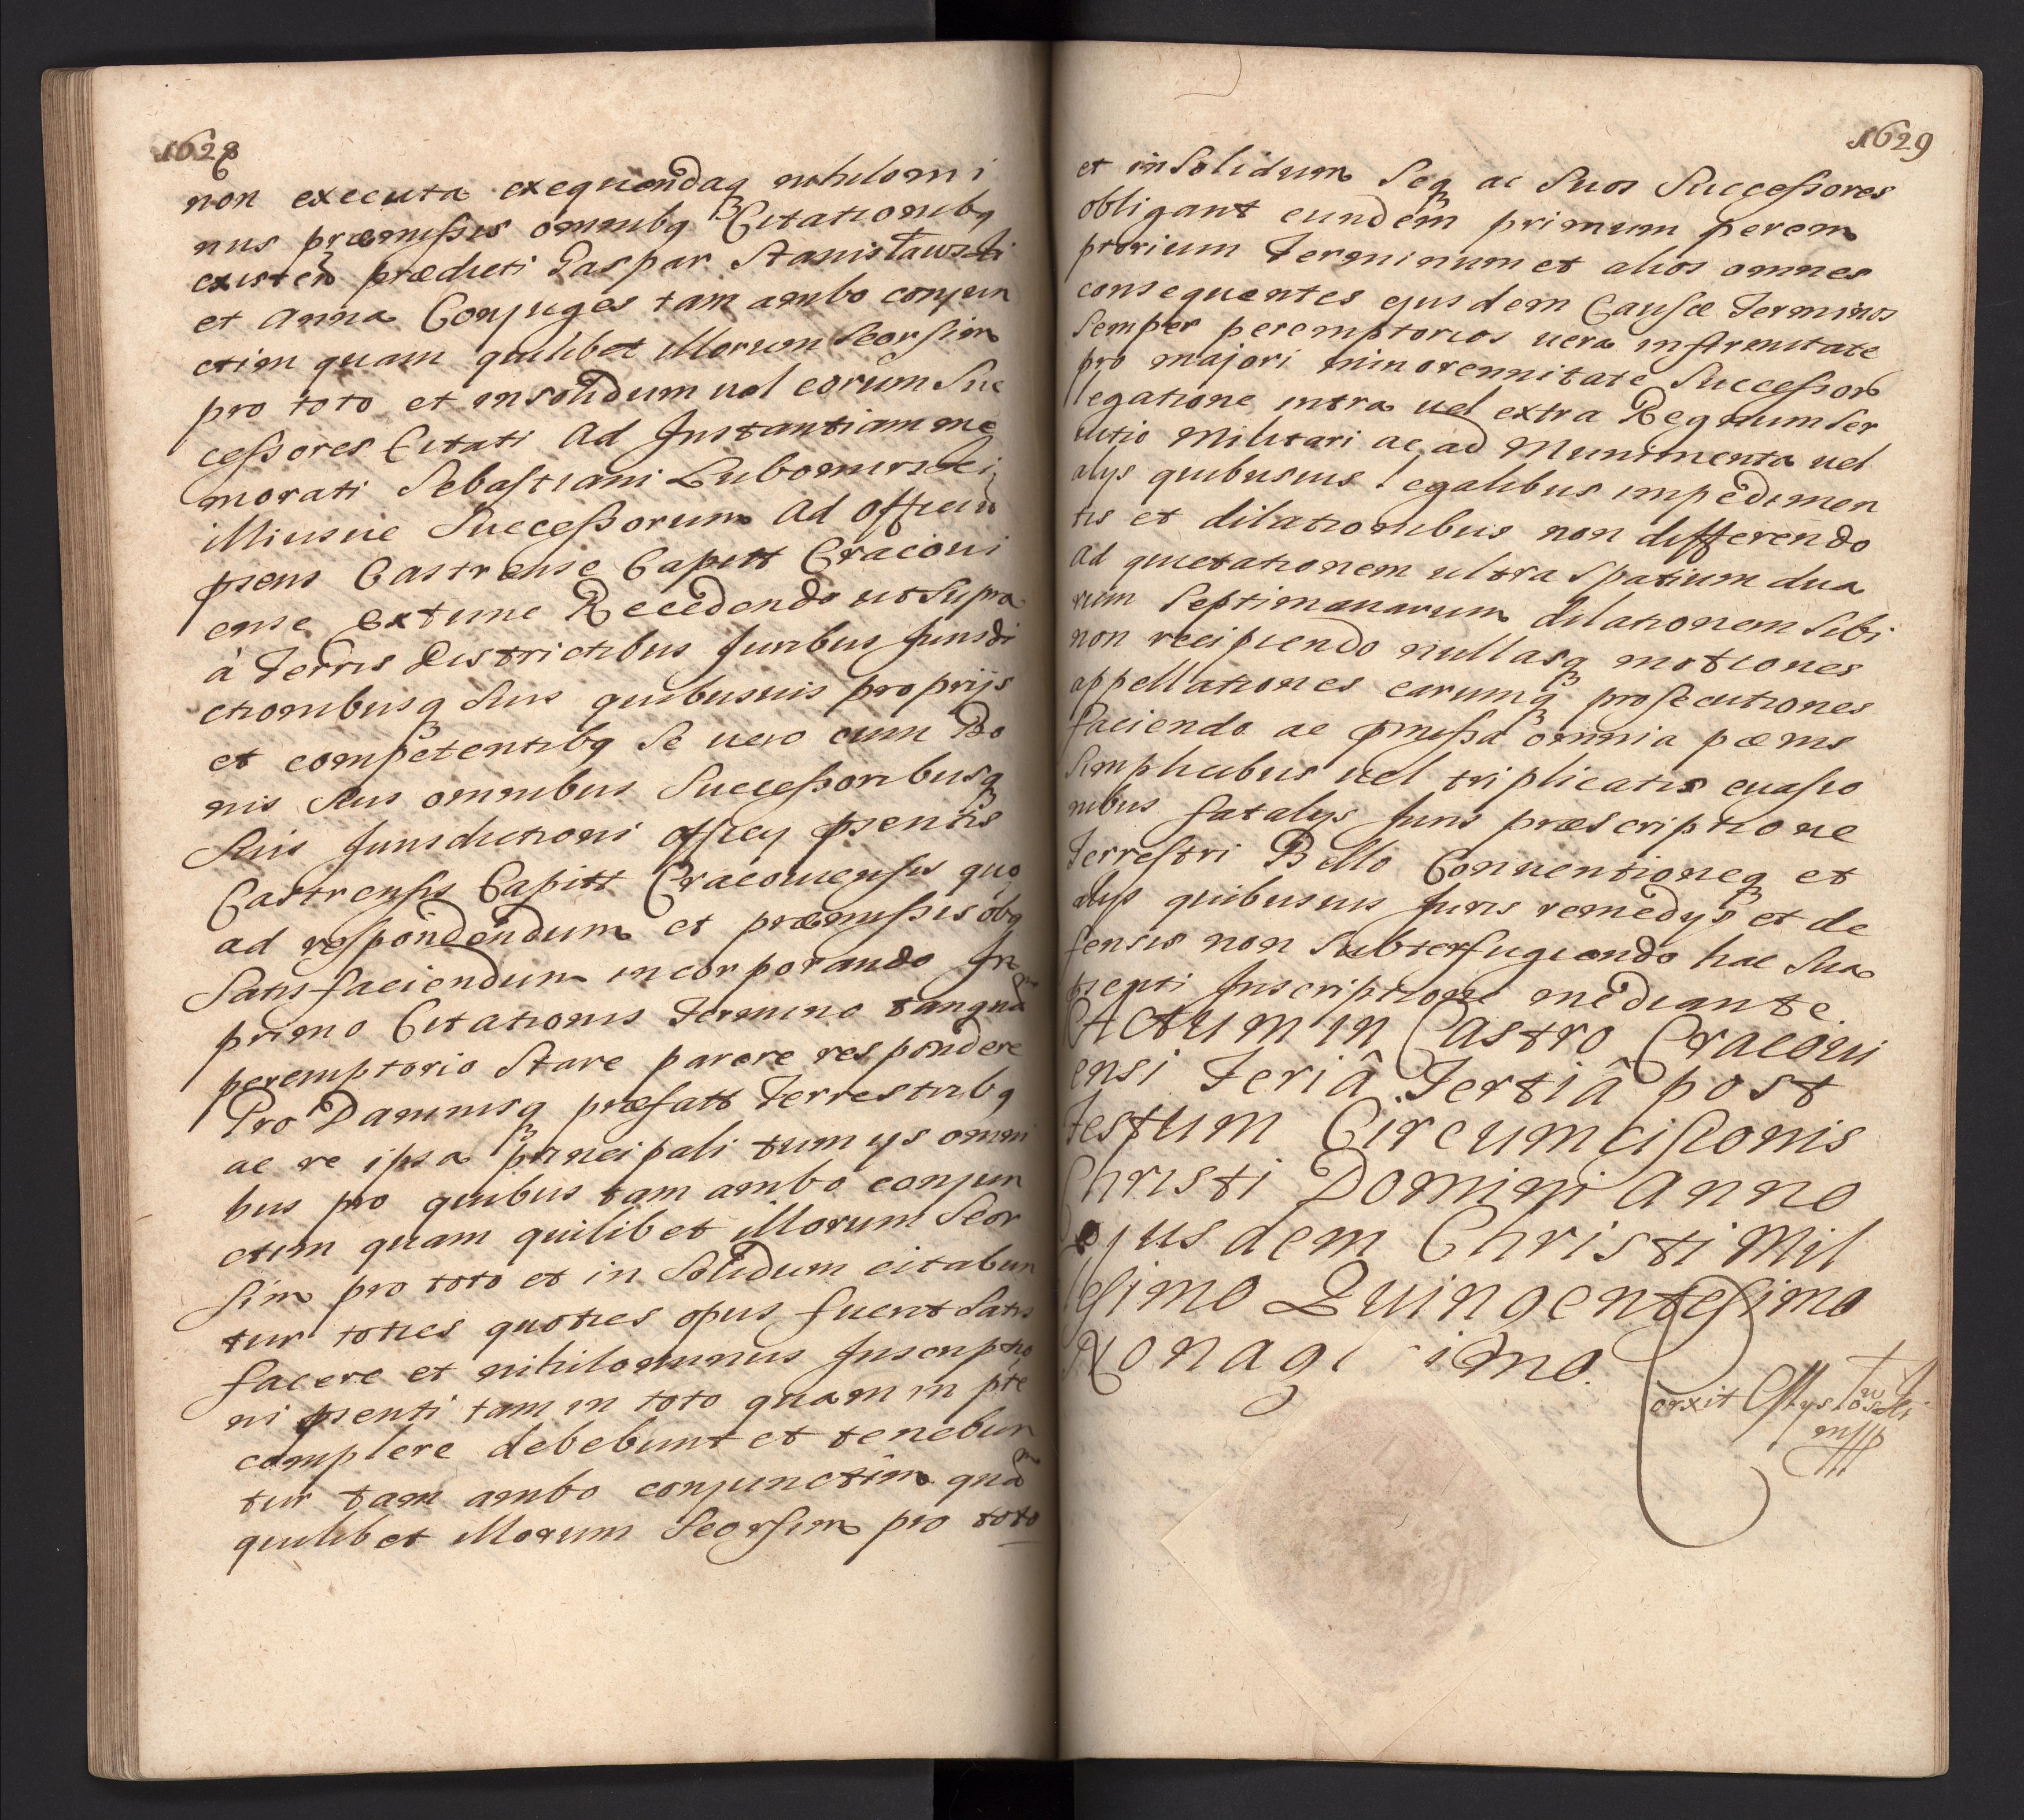 1628
non executa exequendaq nihilomi
nus præmissis omnibq Citationibq
existen prædicti Gaspar Stanisławski
et Anna Conjuges tam ambo conjun
ctim quam quilibet illorum Seorsim
pro toto et insolidum uel eorum Suc
cessores Citati Ad Instantiam me
morati Sebastiani Lubomirski
illiusue Successorum Ad Officiu
pſens Castrense Capitt Cracoui
ense Extunc Recedendo ut supra
à Terris Districtibus Juribus Jurisdi
ctionibusq Suis quibusuis proprijs
et competentibq Se uero cum Bo
nis Suis omnibus Successoribusq
Suis Jurisdictioni Officy pſentis
Castrensis Capitt Cracouiensis quo
ad respondendum et præmissis oibq
Satisfaciendum incorporando In
primo Citationis Termino tanqua
peremptorio Stare parere respondere
Pro Damnisq præfatt Terrestribq
ac re ipsa principali tum ys omni
bus pro quibus tam ambo conjun
ctim quam quilibet illorum Seor
sim pro toto et in Solidum citabun
tur toties quoties opus fuerit Satis
facere et nihilominus Inscriptio
ni pſenti tam in toto quam in pte
complere debebunt et tenebun
tur tam ambo conjunctim qua
quilibet illorum Seorsim pro toto
1629
et insolidum Seq ac Suos Successores
obligant eundem primum perem
ptorium Terminum et alios omnes
consequentes ejusdem Causæ Terminos
Semper peremptorios uera infirmitate
pro majori minorennitate Successor
legatione intra uel extra Regnum Ser
uitio Militari ac ad Munimenta uel
alys quibusuis legalibus impedimen
tis et dilationibus non differendo
Ad quietationem ultra spatium dua
rum Septimanarum dilationem Sibi
non recipiendo nullasq motiones
appellationes earumq prosecutiones
faciendo ac pmissa omnia pœnis
Simplicibus uel triplicatis euasio
nibus fatalys Juris præscriptione
Terrestri Bello Conuentioneq et
alys quibusuis Juris remedys et de
fensis non Subterfugiendo hac Sua
pſenti Inscriptione mediante
Actum in Castro Cracoui
ensi Feriâ Tertiâ post
Festum Circumcisionis
Christi Domini Anno
ejusdem Christi Mil
lesimo Quingentesimo
Nonagesimo.